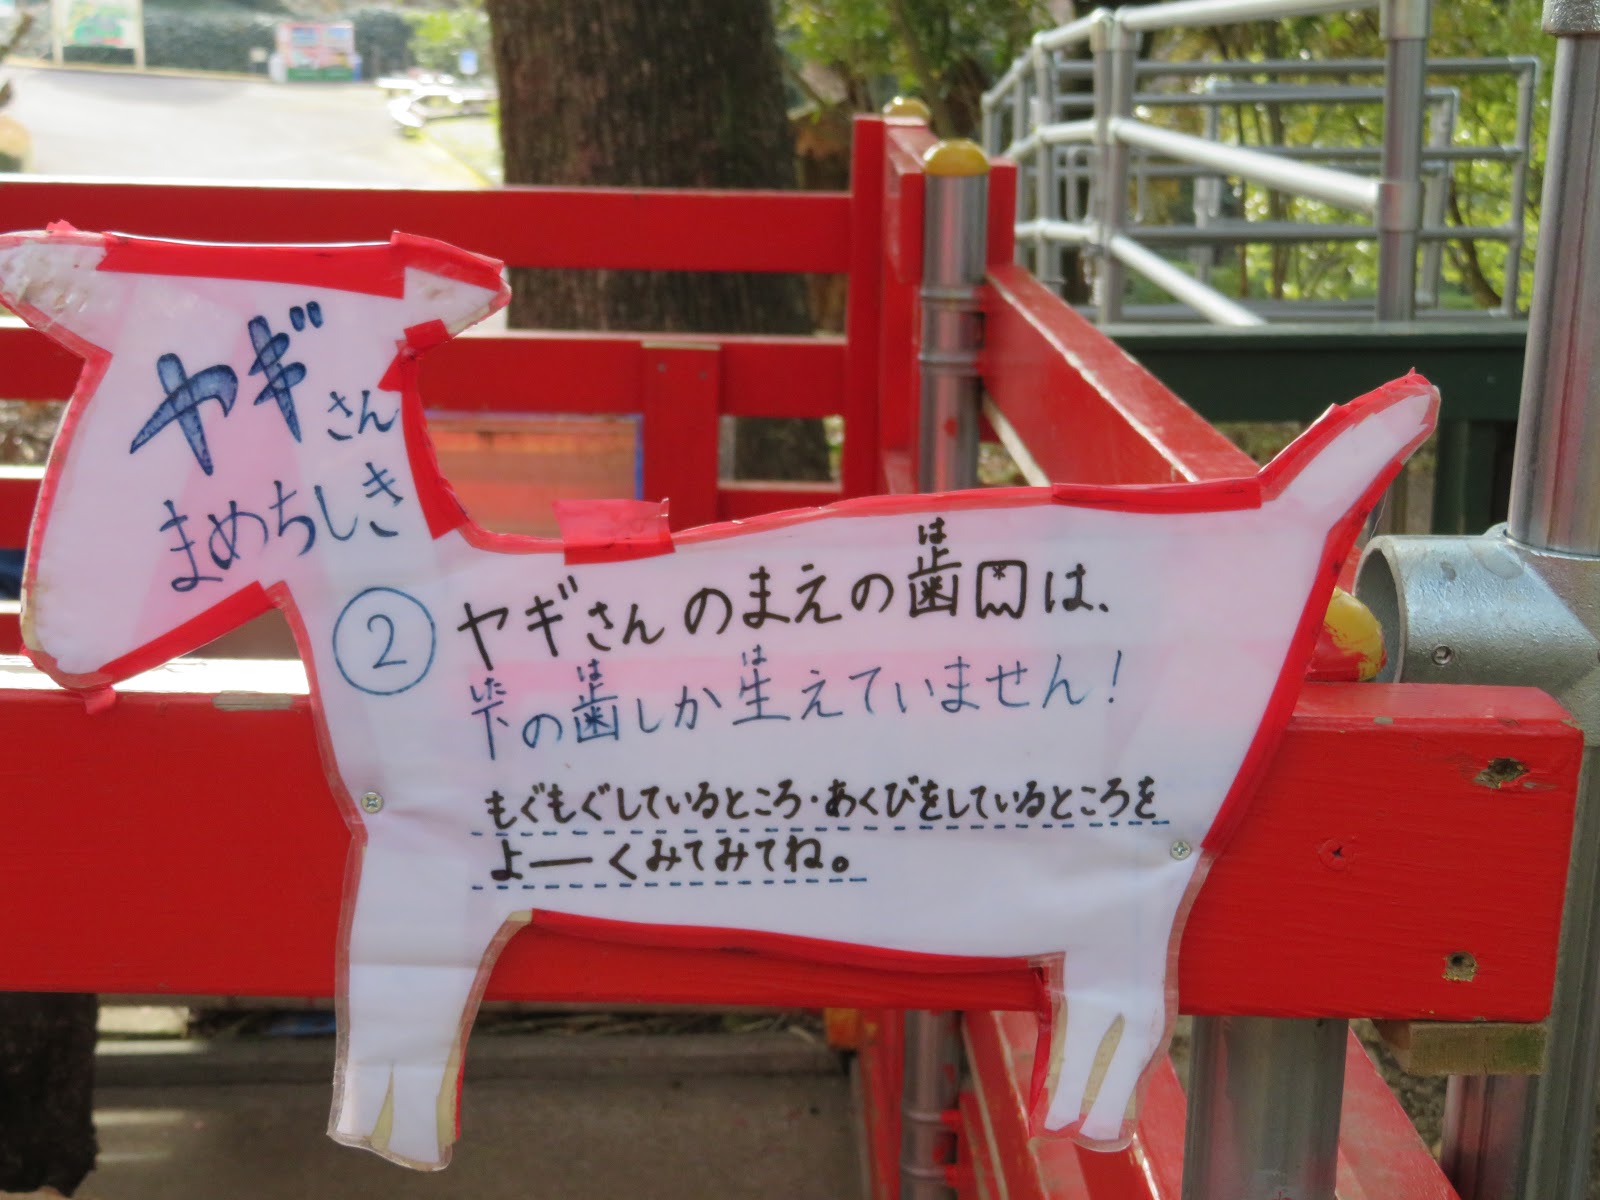 ヤギさん
まめちしき
② ヤギさんのまえの歯は、
下の歯しか生えていません!
もぐもぐしているところ・あくびをしているところを
よーくみてみてね。